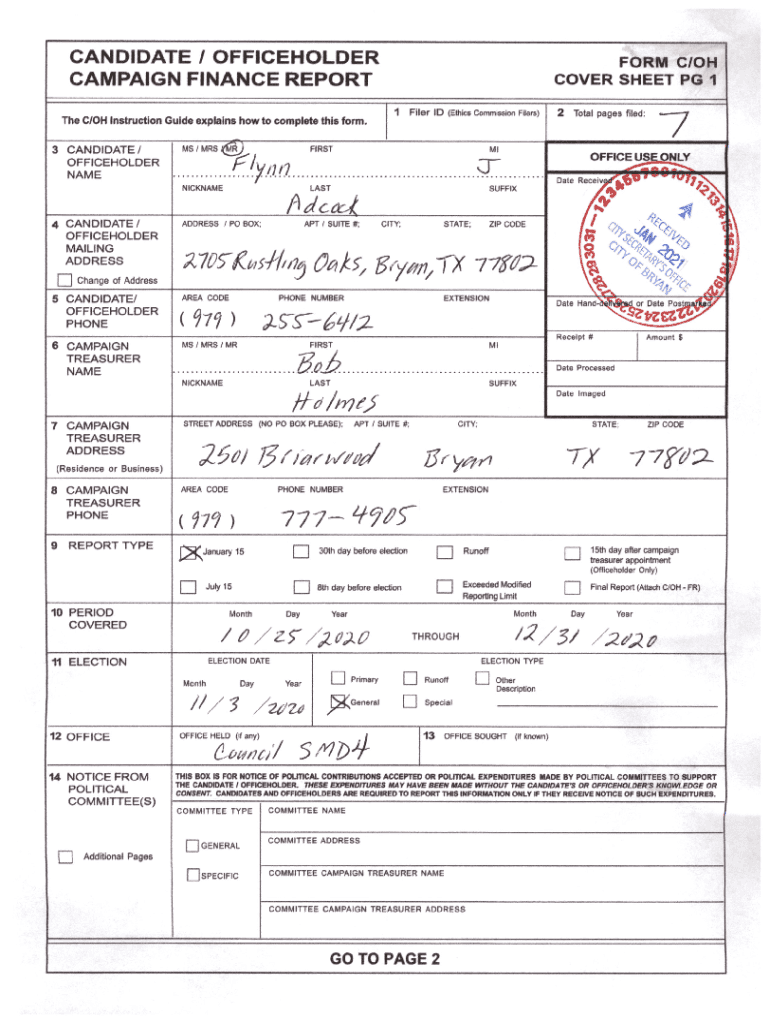 CANDIDATE / OFFICEHOLDER
CAMPAIGN FINANCE REPORT
FORM C/OH
COVER SHEET PG 1
The C/OH Instruction Guide explains how to complete this form.
1 Filer ID (Ethics Commission Filers)
2 Total pages filed:
7
3 CANDIDATE / OFFICEHOLDER NAME
MS / MRS / MR FIRST MI
Flynn J
NICKNAME LAST SUFFIX
Adcock
OFFICE USE ONLY
Date Received
RECEIVED
JAN 2021
CITY SECRETARY'S OFFICE
CITY OF BRYAN
4 CANDIDATE / OFFICEHOLDER MAILING ADDRESS
Change of Address
ADDRESS / PO BOX; APT / SUITE #; CITY; STATE; ZIP CODE
2705 Rustling Oaks, Bryan, TX 77802
5 CANDIDATE/ OFFICEHOLDER PHONE
AREA CODE PHONE NUMBER EXTENSION
(979) 255-6412
Date Hand-delivered or Date Postmarked
Receipt # Amount $
Date Processed
Date Imaged
6 CAMPAIGN TREASURER NAME
MS / MRS / MR FIRST MI
Bob
NICKNAME LAST SUFFIX
Holmes
7 CAMPAIGN TREASURER ADDRESS
(Residence or Business)
STREET ADDRESS (NO PO BOX PLEASE); APT / SUITE #; CITY; STATE; ZIP CODE
2501 Briarwood Bryan TX 77802
8 CAMPAIGN TREASURER PHONE
AREA CODE PHONE NUMBER EXTENSION
(979) 777-4905
9 REPORT TYPE
January 15
30th day before election
Runoff
15th day after campaign treasurer appointment (Officeholder Only)
July 15
8th day before election
Exceeded Modified Reporting Limit
Final Report (Attach C/OH - FR)
10 PERIOD COVERED
Month Day Year
10/25/2020
THROUGH
Month Day Year
12/31/2020
11 ELECTION
ELECTION DATE
Month Day Year
11/3/2020
ELECTION TYPE
Primary
Runoff
Other Description
General
Special
12 OFFICE
OFFICE HELD (if any)
Council SMD4
13 OFFICE SOUGHT (if known)
14 NOTICE FROM POLITICAL COMMITTEE(S)
Additional Pages
THIS BOX IS FOR NOTICE OF POLITICAL CONTRIBUTIONS ACCEPTED OR POLITICAL EXPENDITURES MADE BY POLITICAL COMMITTEES TO SUPPORT
THE CANDIDATE / OFFICEHOLDER. THESE EXPENDITURES MAY HAVE BEEN MADE WITHOUT THE CANDIDATE'S OR OFFICEHOLDER'S KNOWLEDGE OR
CONSENT. CANDIDATES AND OFFICEHOLDERS ARE REQUIRED TO REPORT THIS INFORMATION ONLY IF THEY RECEIVE NOTICE OF SUCH EXPENDITURES.
COMMITTEE TYPE
GENERAL
SPECIFIC
COMMITTEE NAME
COMMITTEE ADDRESS
COMMITTEE CAMPAIGN TREASURER NAME
COMMITTEE CAMPAIGN TREASURER ADDRESS
GO TO PAGE 2